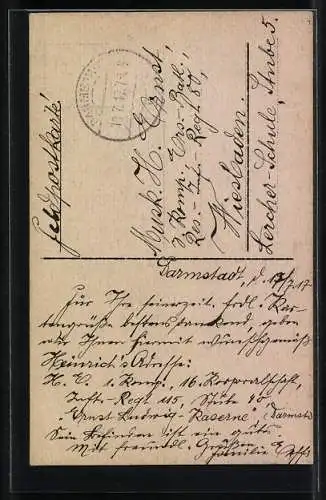 Feldpostkarte
Musk. H. Ernst
3. Komp. Ers. Batl.
Res.-Inf.-Regt. 80,
Wiesbaden.
Lercher-Schule, Stube 5.
Darmstadt, d. 17/7.17
Für Ihre seinerzeit. frdl. Kar-
tengrüße bestens dankend, geben
wir Ihnen hiermit wunschgemäß
Heinrich's Adresse:
H. E. 1. Komp., 16. Korporalschaft,
Inftr.-Regt 115, Stube 40
"Ernst-Ludwig-Kaserne" (Darmst.)
Sein Befinden ist ein gutes.
Mit freundl. Grüßen
Familie